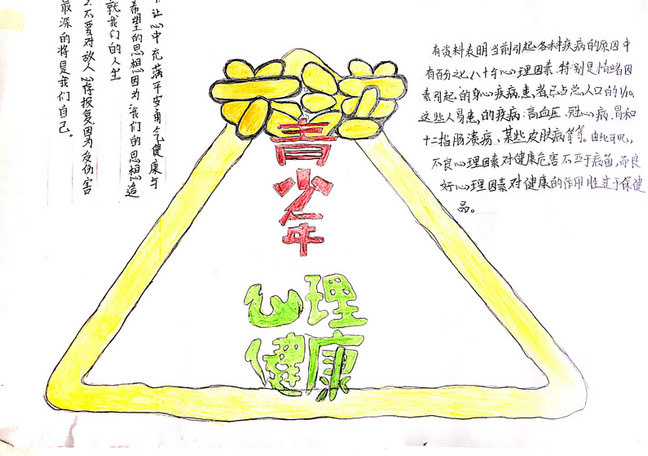 关注
青
少
年
心理
健康
让心中充满平安勇气健康与
希望的思想因为我们的思想造
就我们的人生
不要对敌人心存报复因为反伤害
最深的将是我们自己。
有资料表明当前引起各种疾病的原因中
有百分之八十介心理因素,特别是情绪因
素引起的身心疾病患者已占总人口的1/10
这些人易患的疾病:高血压、冠心病、胃和
十二指肠溃疡、某些皮肤病等等。由此可见,
不良心理因素对健康危害不亚于病菌,而良
好心理因素对健康的作用胜过于保健
品。